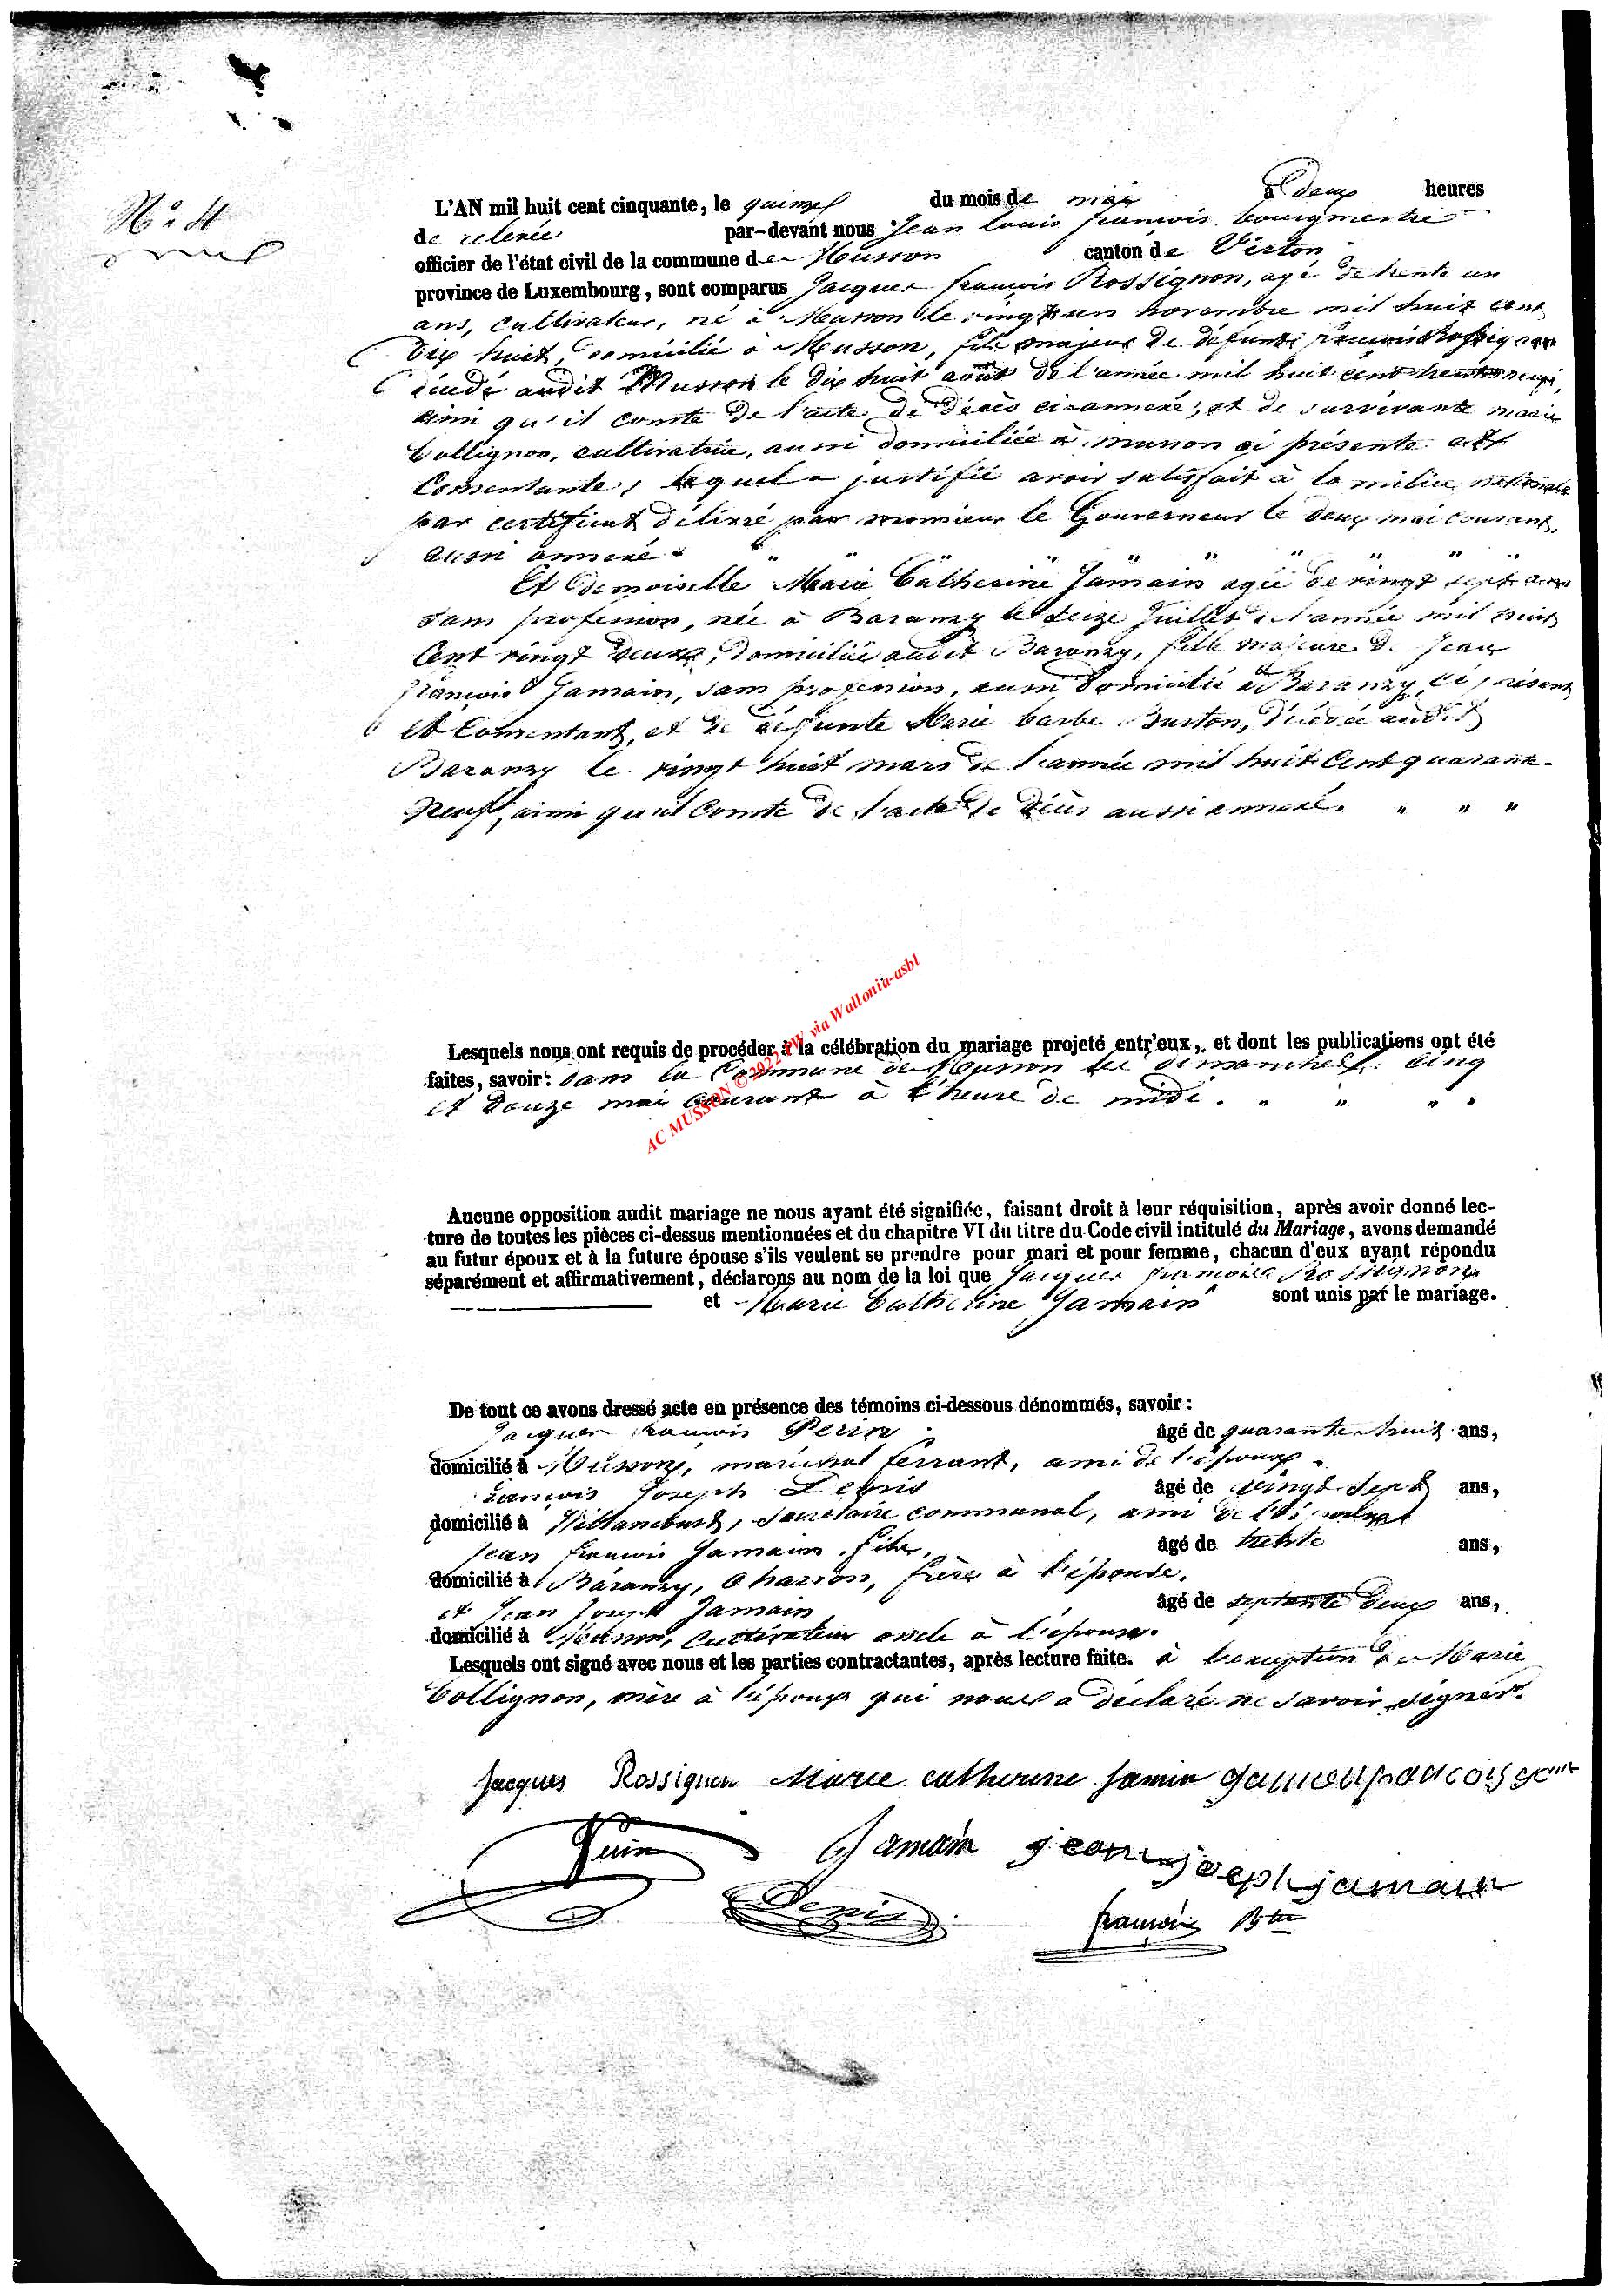 N° 4
L'AN mil huit cent cinquante, le quinze du mois de mai à deux heures
de relevée par-devant nous Jean Louis françois bourgmestre
officier de l'état civil de la commune de Musson canton de Virton
province de Luxembourg, sont comparus Jacques françois Rossignon, agé de trente un
ans, cultivateur, né à Musson le vingt un novembre mil huit cent
dix huit, domicilié à Musson, fils majeur de défunt françois Rossignon
décédé audit Musson le dix huit août de l'année mil huit cent trente
ainsi qu'il conste de l'acte de décès ci-annexé, et de survivante marie
Collignon, cultivatrice, aussi domiciliée à musson ci présente et
Consentante, lequel a justifié avoir satisfait à la milice nationale
par certificat délivré par monsieur le Gouverneur le deux mai courant,
aussi annexé " " " " " " " " " "
Et Demoiselle Marie Catherine Jamain agée de vingt sept ans
sans profession, née à Baranzy le seize Juillet de l'année mil huit
Cent vingt deux, domiciliée audit Baranzy, fille majeure de Jean
françois Jamain, sans profession, aussi domicilié à Baranzy, ci présent
et Consentant, et de défunte Marie barbe Burton, décédée audit
Baranzy le vingt huit mars de l'année mil huit Cent quarante
neuf, ainsi qu'il Conste de l'acte de décès aussi annexé. " " "
Lesquels nous ont requis de procéder à la célébration du mariage projeté entr'eux, et dont les publications ont été
faites, savoir: dans la Commune de Musson les dimanches cinq
et douze mai courant à l'heure de midi. " " " "
AC MUSSON © 2022 PW via Wallonia-asbl
Aucune opposition audit mariage ne nous ayant été signifiée, faisant droit à leur réquisition, après avoir donné lec-
ture de toutes les pièces ci-dessus mentionnées et du chapitre VI du titre du Code civil intitulé du Mariage, avons demandé
au futur époux et à la future épouse s'ils veulent se prendre pour mari et pour femme, chacun d'eux ayant répondu
séparément et affirmativement, déclarons au nom de la loi que Jacques françois Rossignon
et Marie Catherine Jamain sont unis par le mariage.
De tout ce avons dressé acte en présence des témoins ci-dessous dénommés, savoir:
Jacques françois Perin âgé de quarante huit ans,
domicilié à Musson, maréchal ferrant, ami de l'époux.
françois Joseph Denis âgé de vingt sept ans,
domicilié à Willancourt, secrétaire communal, ami de l'époux
Jean françois Jamain fils, âgé de trente ans,
domicilié à Baranzy, charron, frère à l'épouse.
et Jean Joseph Jamain âgé de septante deux ans,
domicilié à Musson, Cultivateur oncle à l'épouse.
Lesquels ont signé avec nous et les parties contractantes, après lecture faite. à l'exception de Marie
Collignon, mère à l'époux qui nous a déclaré ne savoir signer.
Jacques Rossignon Marie catherine Jamin
Perin Jamain jean joseph jamain
Denis françois Btre